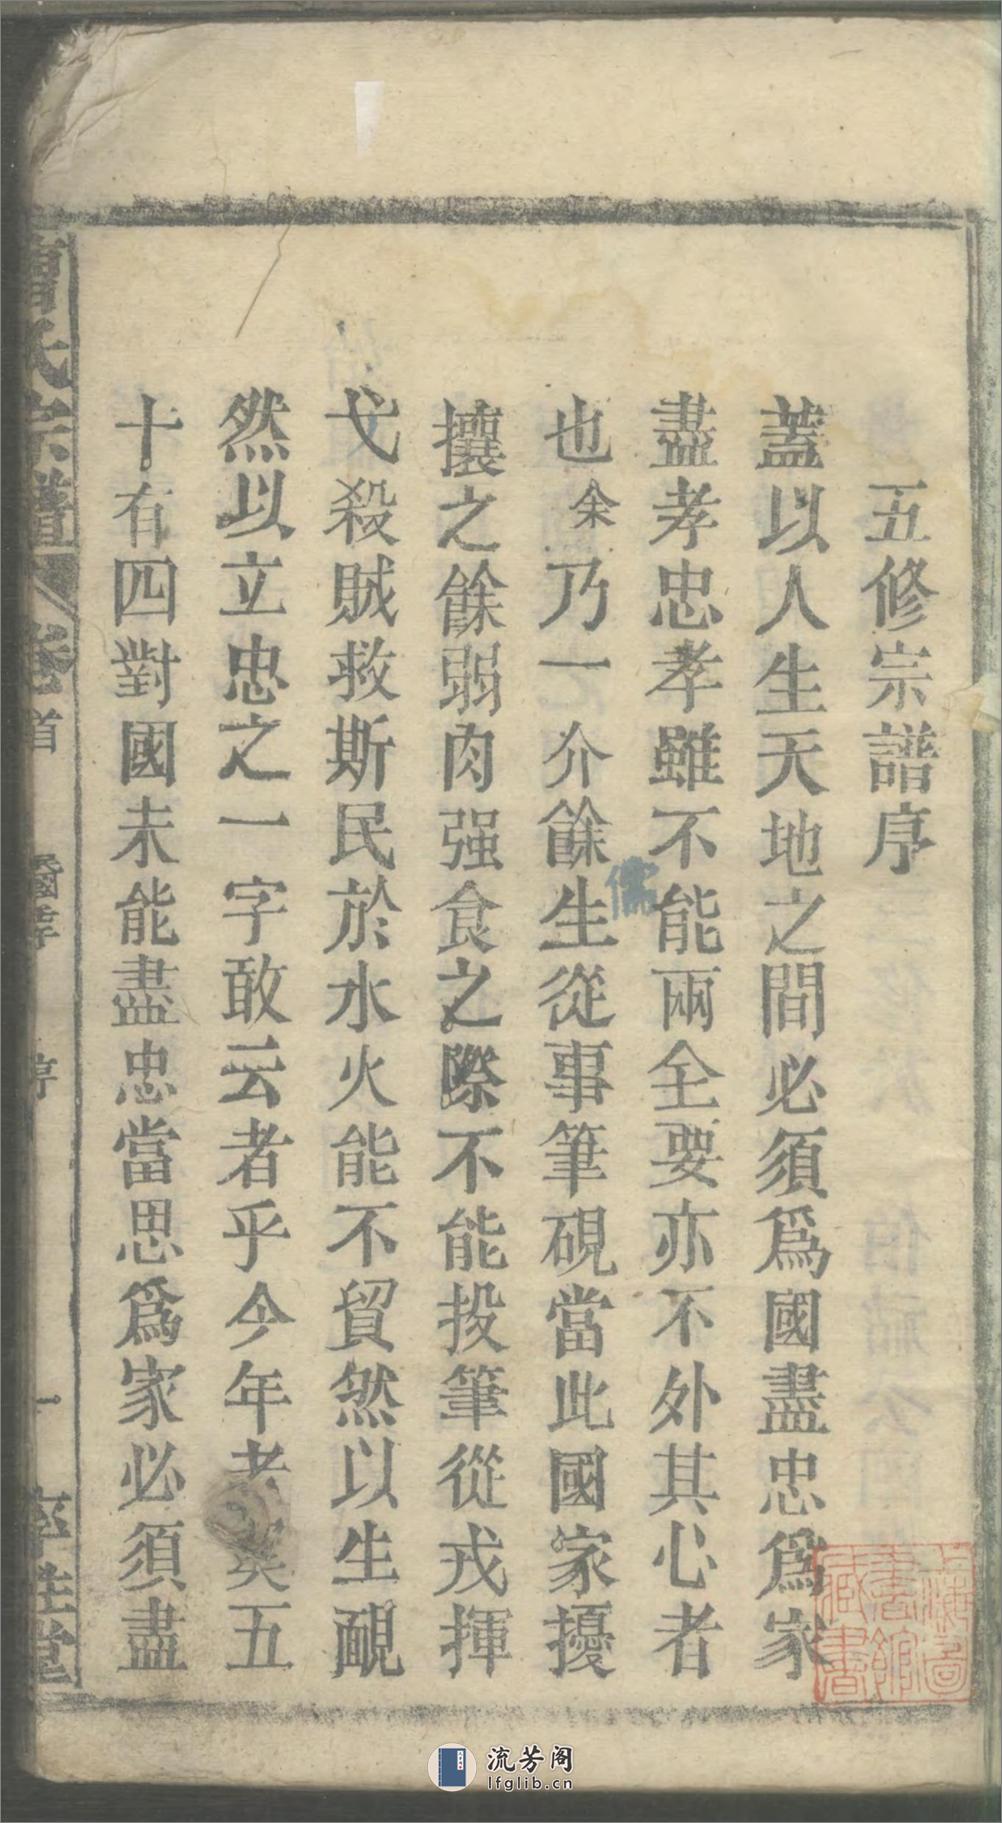 五修宗譜序
蓋以人生天地之間必須爲國盡忠爲家
盡孝忠孝雖不能兩全要亦不外其心者
也余乃一介餘生從事筆硯當此國家擾
儒
攘之餘弱肉强食之際不能投筆從戎揮
戈殺賊救斯民於水火能不貿然以生靦
然以立忠之一字敢云者乎今年老矣五
十有四對國未能盡忠當思爲家必須盡
曹氏宗譜 卷首 序 一
上海圖書館藏書
流芳阁
lfglib.cn